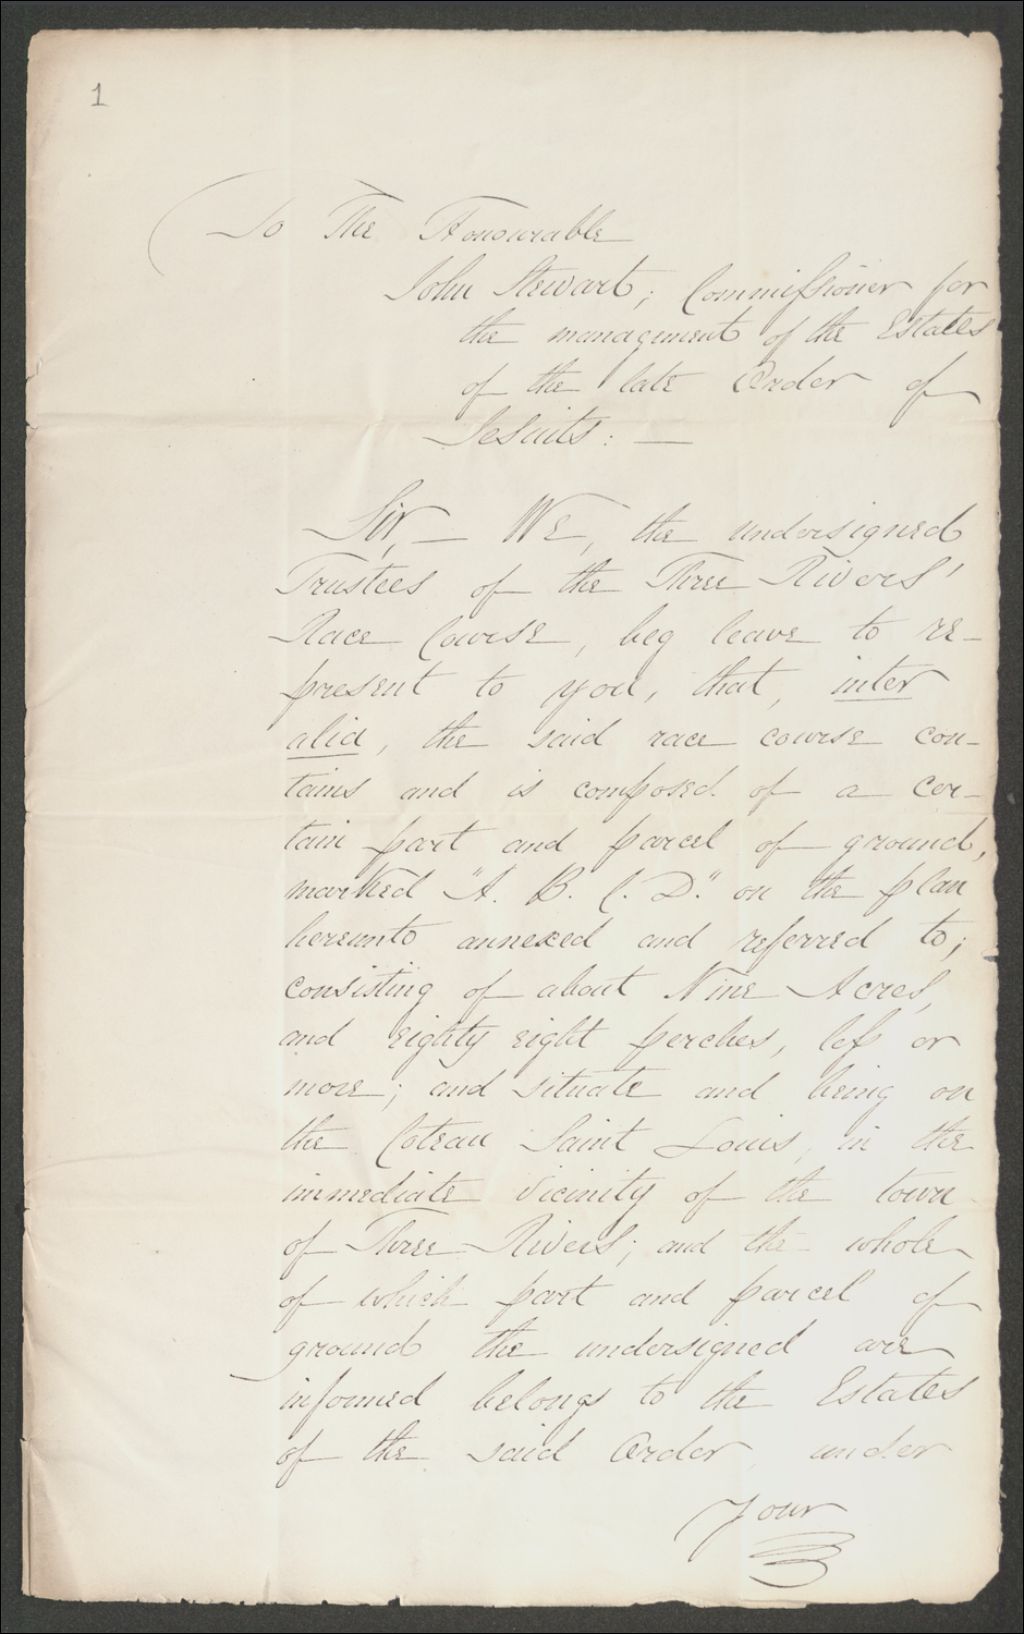 1
To The Honourable
John Stewart; Commissioner for
the management of the Estates
of the late Order of
Jesuits: —
Sir, — We, the undersigned
Trustees of the Three Rivers'
Race Course, beg leave to re-
present to you, that, inter
alia, the said race course con-
tains and is composed of a cer-
tain part and parcel of ground,
marked "A. B. C. D." on the plan
hereunto annexed and referred to;
consisting of about Nine Acres,
and eighty eight perches, less or
more; and situate and being on
the Coteau Saint Louis, in the
immediate vicinity of the town
of Three Rivers; and the whole
of which part and parcel of
ground the undersigned are
informed belongs to the Estates
of the said Order, under
Your